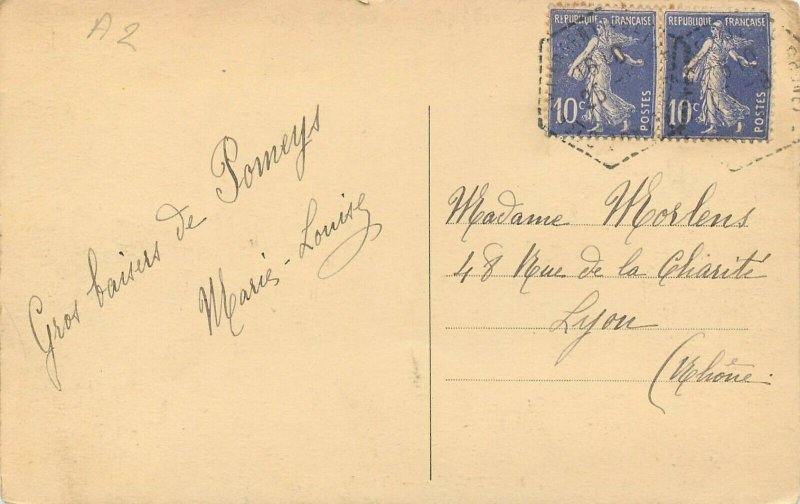 A2
REPUBLIQUE FRANÇAISE
10c
POSTES
REPUBLIQUE FRANÇAISE
10c
POSTES
Gros baisers de Pomeys
Marie-Louise
Madame Morlens
48 Rue de la Charité
Lyon
(Rhône.